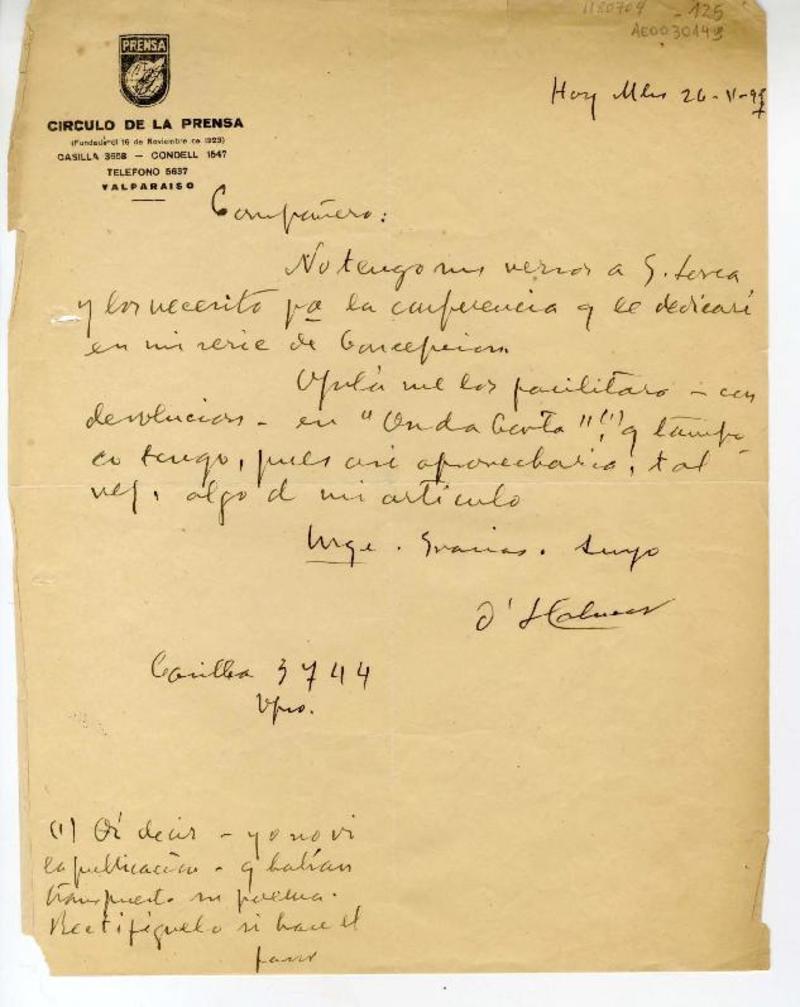 1180704 - 125
AE0030149
PRENSA
CIRCULO DE LA PRENSA
(Fundado el 16 de Noviembre de 1923)
CASILLA 3658 — CONDELL 1547
TELEFONO 5637
VALPARAISO
Hoy Mles 26-V-
Compañero:
No tengo mis versos a G. Lorca
y los necesito pa la conferencia q le dedicaré
en mi serie de Concepcion.
me los facilitara - con
devolucion - en "Onda Corta"(1), q tampo
co tengo, pues asi aprovecharia, tal
vez, algo d mi articulo
Urge. Gracias. Suyo
d'Halmar
Casilla 3744
Vpso.
(1) Oí decir - yo no vi
la publicación - q habían
transpuesto mi poema.
Rectifíquelo si hace el
favor